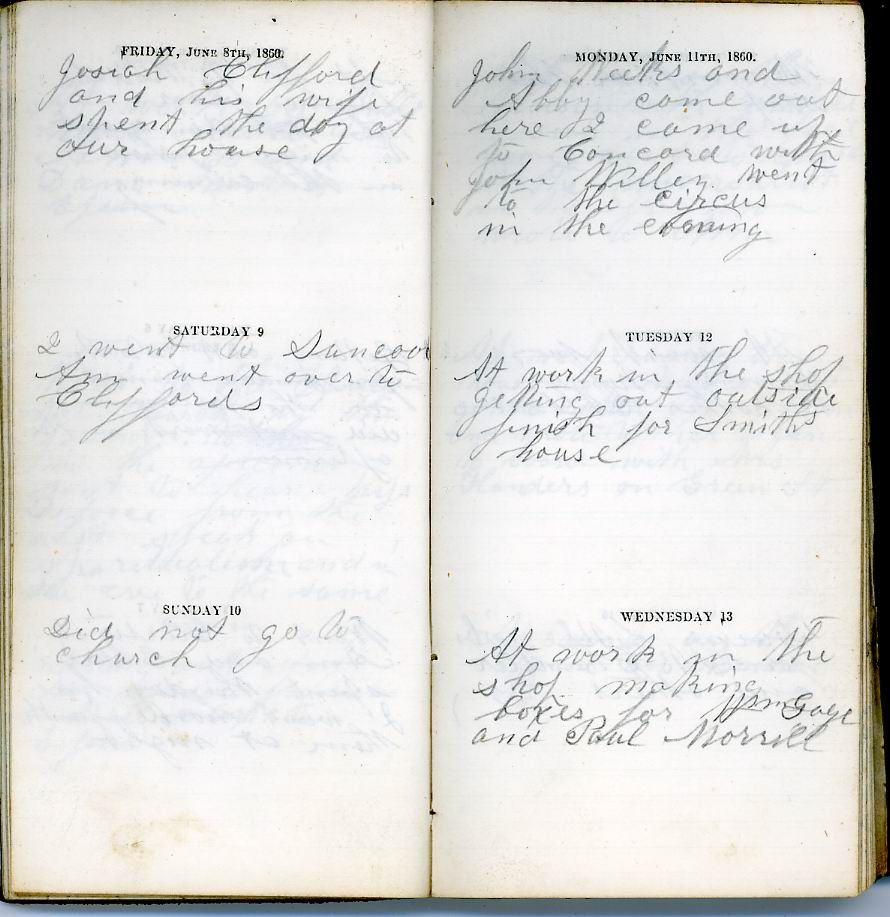 FRIDAY, JUNE 8TH, 1860.
Josiah Clifford
and his wife
spent the day at
our house
SATURDAY 9
I went to Suncook
Ann went over to
Cliffords
SUNDAY 10
Did not go to
church
MONDAY, JUNE 11TH, 1860.
John Meeks and
Abby came out
here I came up
to Concord with
John Willey went
to the circus
in the evening
TUESDAY 12
At work in the shop
getting out outside
finish for Smiths
house
WEDNESDAY 13
At work in the
shop making
boxes for Wm Gage
and Paul Morrill